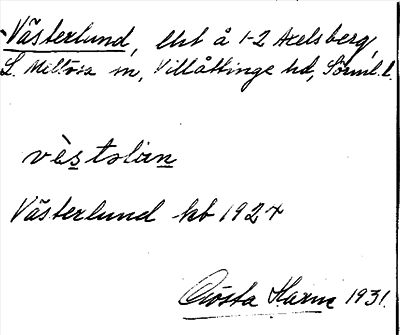 Västerlund, lht å 1-2 Axelsberg,
L. Mellösa sn, Villåttinge hd, Sörml. l.
vèstslun
Västerlund kb 1924
Gösta Karne 1931.